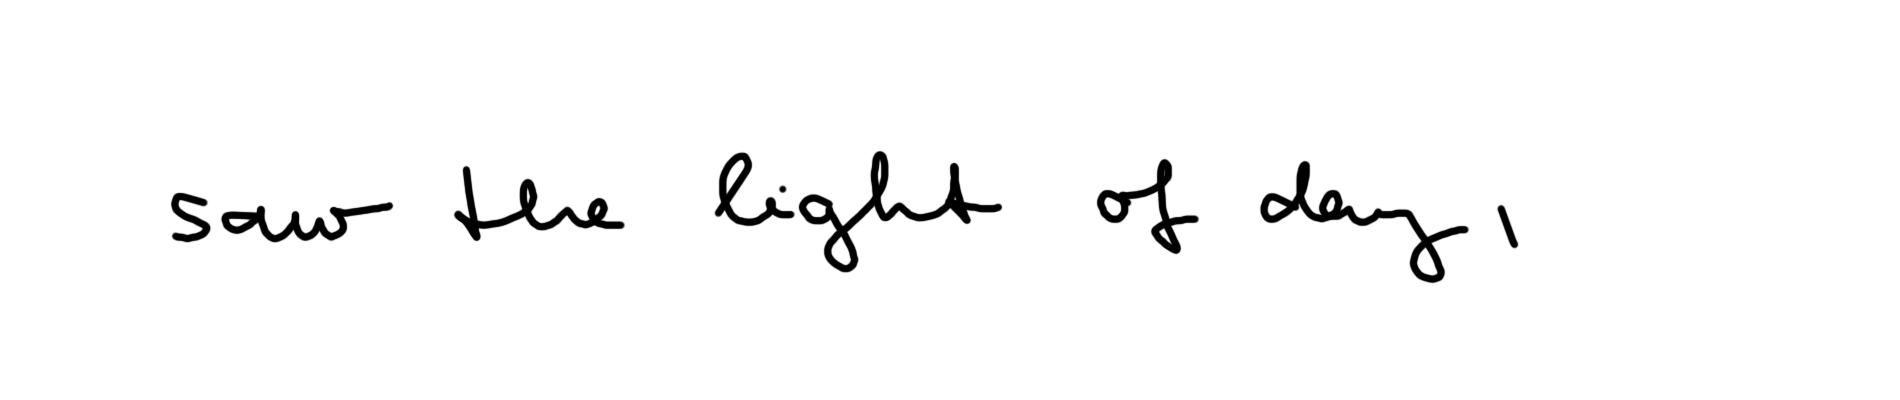 saw the light of day,